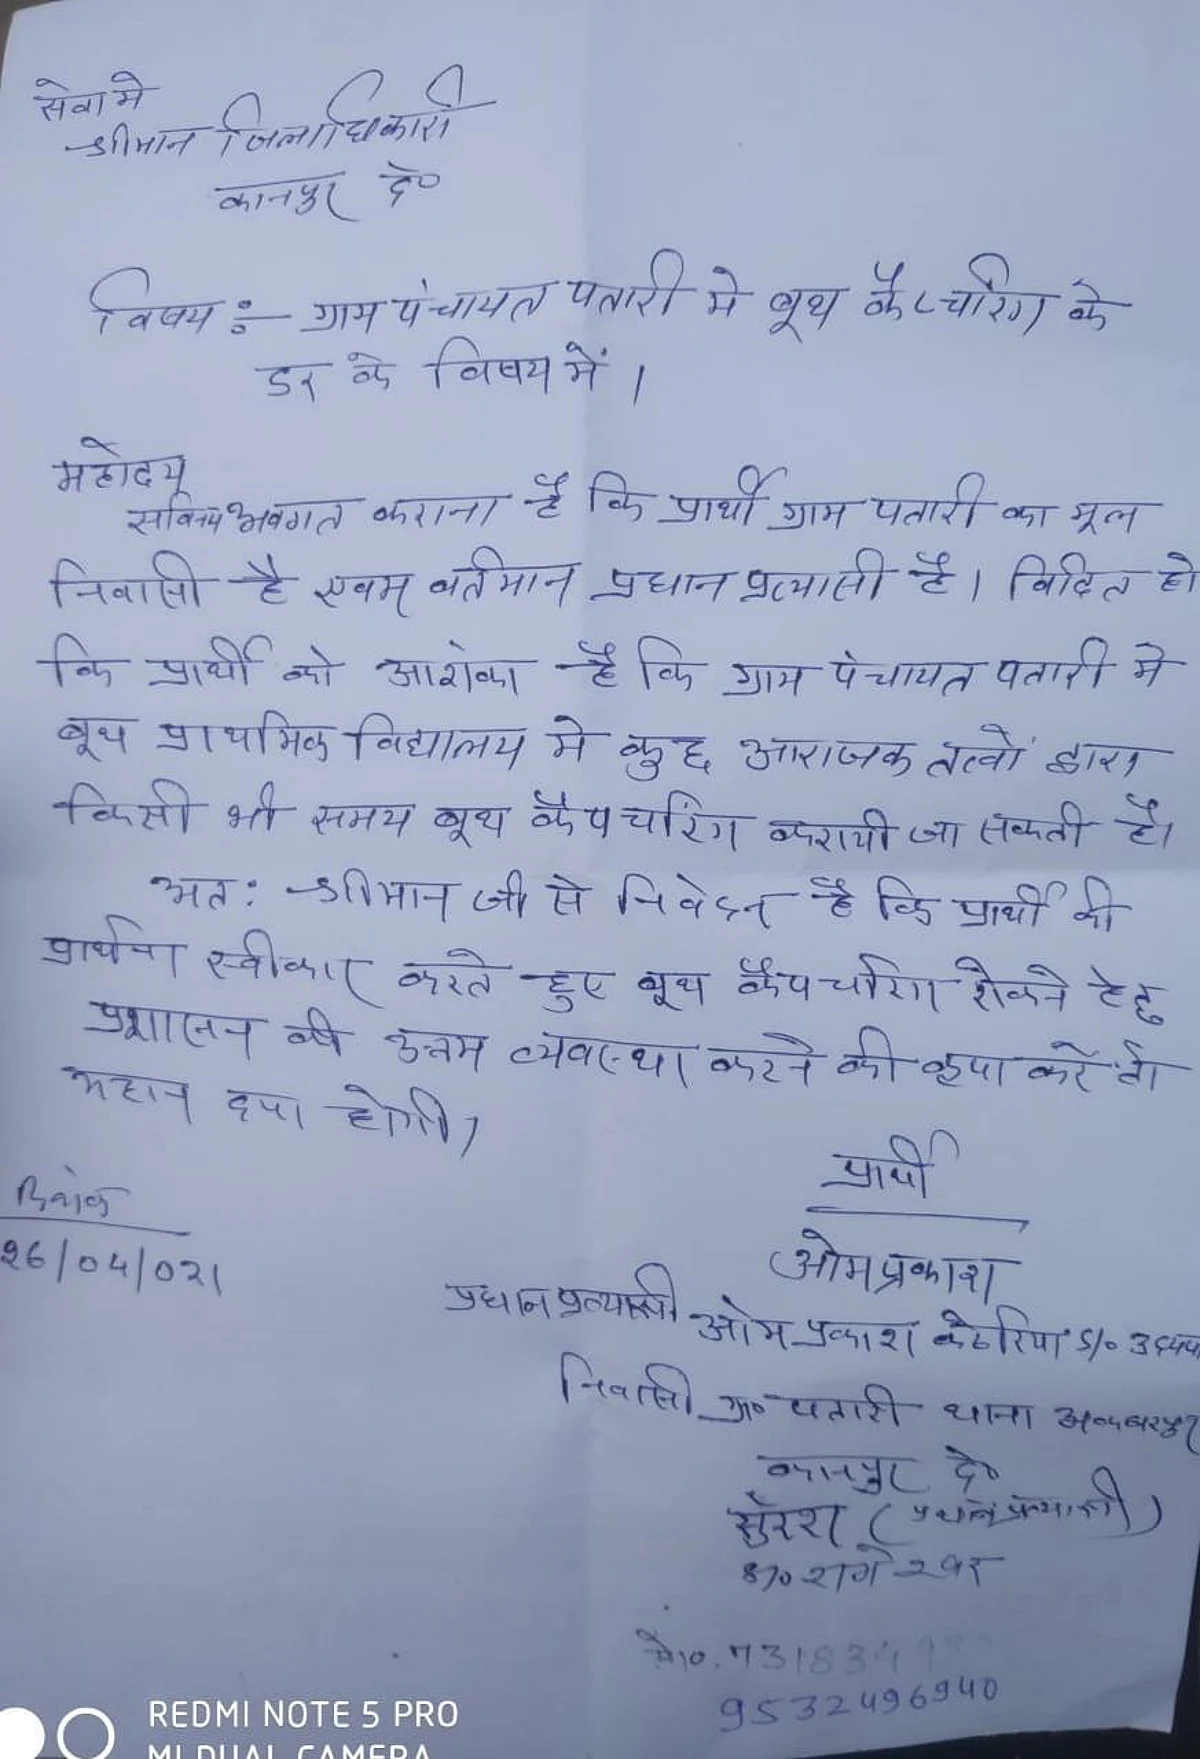 सेवा मे
श्रीमान जिलाधिकारी
कानपुर दे०
विषय :- ग्राम पंचायत पतारी मे बूथ कैप्चरिंग के
डर के विषय में ।
महोदय
सविनय अवगत कराना है कि प्रार्थी ग्राम पतारी का मूल
निवासी है एवम् वर्तमान प्रधान प्रत्यासी है । विदित हो
कि प्रार्थी को आशंका है कि ग्राम पंचायत पतारी मे
बूथ प्राथमिक विद्यालय मे कुछ आराजक तत्वों द्वारा
किसी भी समय बूथ कैपचरिंग करायी जा सकती है।
अतः श्रीमान जी से निवेदन है कि प्रार्थी की
प्रार्थना स्वीकार करते हुए बूथ कैपचरिंग रोकने हेतु
प्रशासन की उत्तम व्यवस्था करने की कृपा करें तो
महान दया होगी।
प्रार्थी
दिनांक
26/04/021
ओमप्रकाश
प्रधान प्रत्यासी ओम प्रकाश कठेरिया S/०
निवासी ग्रा० पतारी थाना अकबरपुर
कानपुर दे०
सुरेश (प्रधान प्रत्यासी)
S/०
मो०. 7318349
9532496940
REDMI NOTE 5 PRO
MI DUAL CAMERA